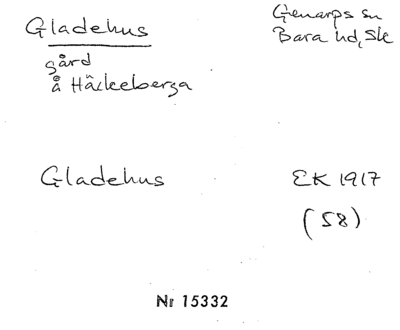 Gladehus
Genarps sn
Bara hd, Sk
gård
å Häckeberga
Gladehus
EK 1917
(58)
Nr 15332